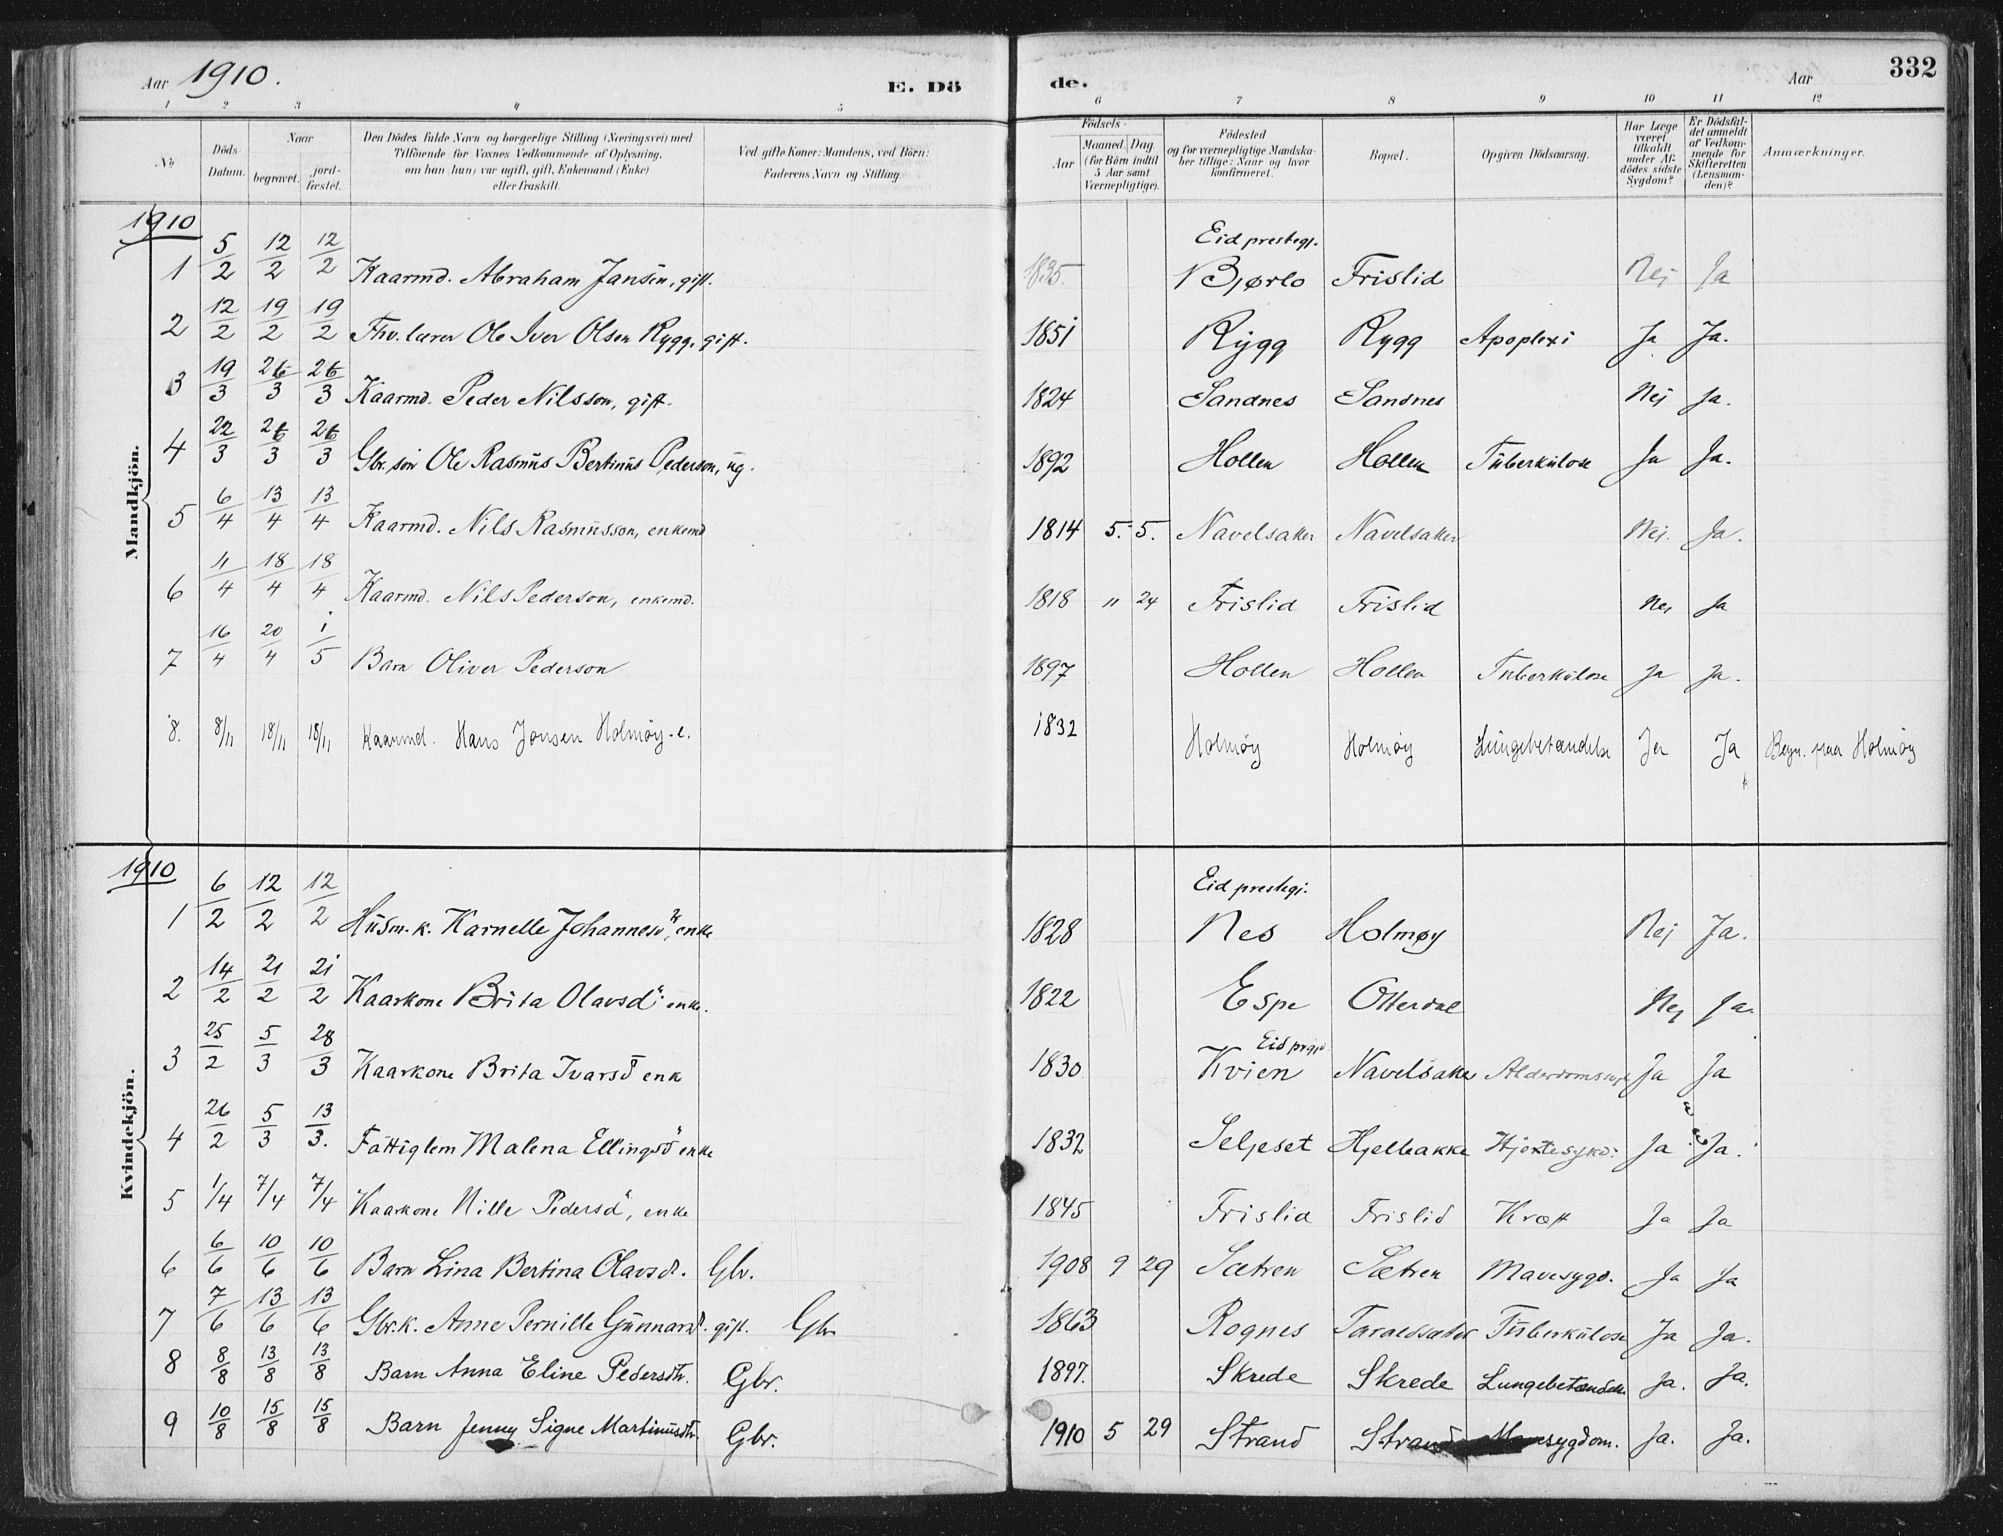 Aar 1910. E. Dö de. Aar 332
1 2 3 4 5 6 7 8 9 10 11 12
No Döds-Datum. Naar begravet. jordfæstet. Den Dödes fulde Navn og borgerlige Stilling (Næringsvei) med Tilföiende for Voxnes Vedkommende af Oplysning, om han (hun) var ugift, gift, Enkemand (Enke) eller fraskilt. Ved gifte Koner: Mandens, ved Börn: Faderens Navn og Stilling. Födsels- Aar Maaned. Dag (for Börn indtil 5 Aar samt Værnepligtige). Födested og for værnepligtige Mandskaber tillige: Naar og hvor konfirmeret. Bopæl. Opgiven Dödsaarsag. Har Læge været tilkaldt under Afdödes sidste Sygdom? Er Dödsfaldet anmeldt af Vedkommende for Skifteretten (Lensmanden)? Anmærkninger.
Mandkjön.
1910
1 5/2 12/2 12/2 Kaarmd. Abraham Jansen, gift. 1835. Eid prestegj. Bjørlo Frislid Nej Ja
2 12/2 19/2 19/2 Fhv. lærer Ole Iver Olsen Rygg, gift. 1851 Rygg Rygg Apoplexi Ja Ja.
3 19/3 26/3 26/3 Kaarmd. Peder Nilsson, gift. 1824 Sandnes Sandnes Nej Ja.
4 22/3 26/3 26/3 Gbr. søn Ole Rasmus Bertinus Pederson, ug. 1892 Hollen Hollen Tuberkulose Ja Ja.
5 6/4 13/4 13/4 Kaarmd. Nils Rasmusson, enkemd 1814 5. 5. Navelsaker Navelsaker Nej. Ja.
6 11/4 18/4 18/4 Kaarmd. Nils Pederson, enkemd. 1818 11 24 Frislid Frislid Nej Ja
7 16/4 20/4 1/5 Barn Oliver Pederson 1897 Hollen Hollen Tuberkulose Ja Ja.
8. 8/11 18/11 18/11 Kaarmd. Hans Jonsen Holmöy - e. 1832 Holmöy Holmöy Lungebetændelse Ja Ja Begr. paa Holmöy
Kvindekjön.
1910
1 6/2 12/2 12/2 Husm.k. Karnelle Johannesdr, enke 1828 Eid prestegj. Nes Holmøy Nej Ja.
2 14/2 21/2 21/2 Kaarkone Brita Olavsdr. enke. 1822 Espe Otterdal Nej Ja.
3 25/2 5/3 28/3 Kaarkone Brita Ivarsd enk 1830 Eid prgjd Kvien Navelsaker Ja Ja
4 26/2 5/3 13/3. Fattiglem Malena Ellingsd enke 1832 Seljeset Hjelbakke Hjertesykd. Ja Ja.
5 1/4 7/4 7/4 Kaarkone Nille Pedersd, enke 1845 Frislid Frislid Kræft Ja Ja
6 6/6 10/6 10/6 Barn Lina Bertina Olavsdr. Gbr. 1908 9 29 Sætren Sætren Mavesygd. Ja Ja
7 7/6 13/6 13/6 Gbr.k. Anne Pernille Gunnarsd. gift. Gbr 1863 Rognes Taraldsæter Tuberkulose Ja Ja.
8 8/8 13/8 13/8 Barn Anna Eline Pedersdtr. Gbr. 1897. Skrede Skrede Lungebetændelse Ja. Ja.
9 10/8 15/8 15/8 Barn Jenny Signe Martinusdtr. Gbr. 1910 5 29 Strand Strand Mavesygdom. Ja. Ja.